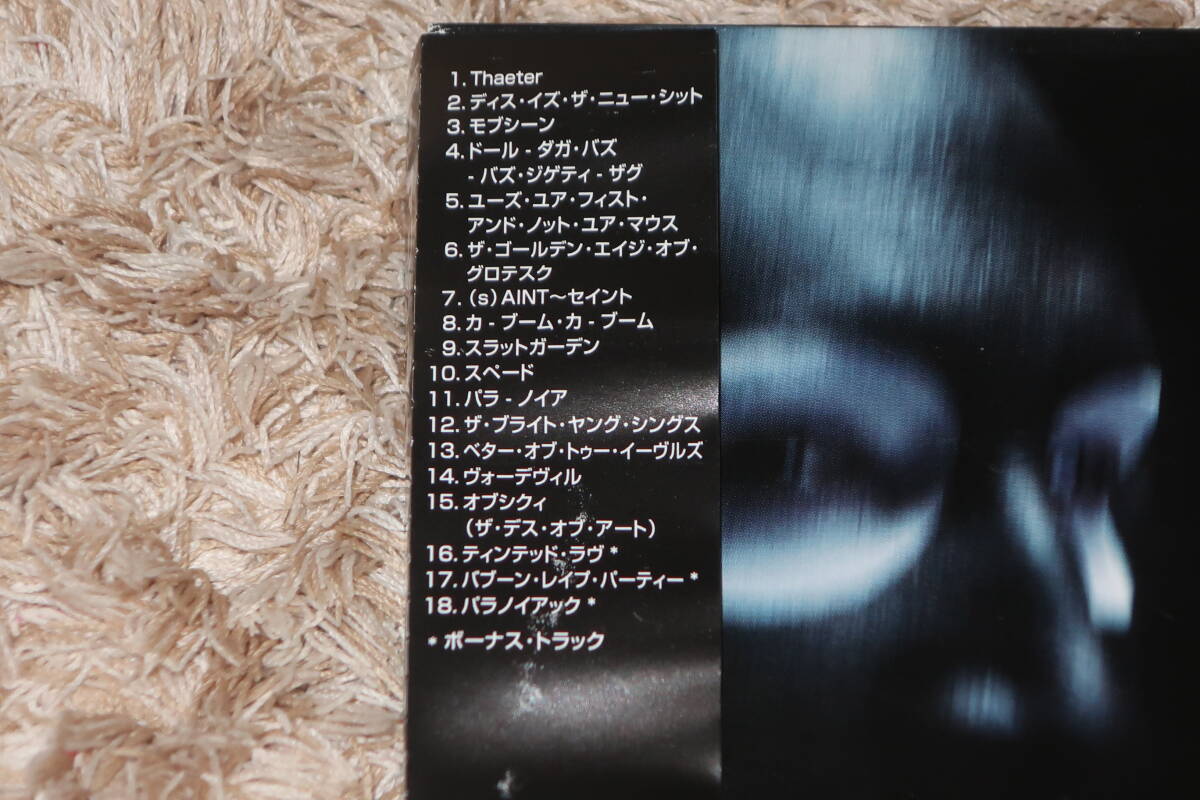 1. Thaeter
2. ディス・イズ・ザ・ニュー・シット
3. モブシーン
4. ドール - ダガ・バズ
- バズ・ジゲティ - ザグ
5. ユーズ・ユア・フィスト・
アンド・ノット・ユア・マウス
6. ザ・ゴールデン・エイジ・オブ・
グロテスク
7. (s)AINT～セイント
8. カ - ブーム・カ - ブーム
9. スラットガーデン
10. スペード
11. パラ - ノイア
12. ザ・ブライト・ヤング・シングス
13. ベター・オブ・トゥー・イーヴルズ
14. ヴォーデヴィル
15. オブシクィ
(ザ・デス・オブ・アート)
16. ティンテッド・ラヴ *
17. バブーン・レイプ・パーティー *
18. パラノイアック *
* ボーナス・トラック